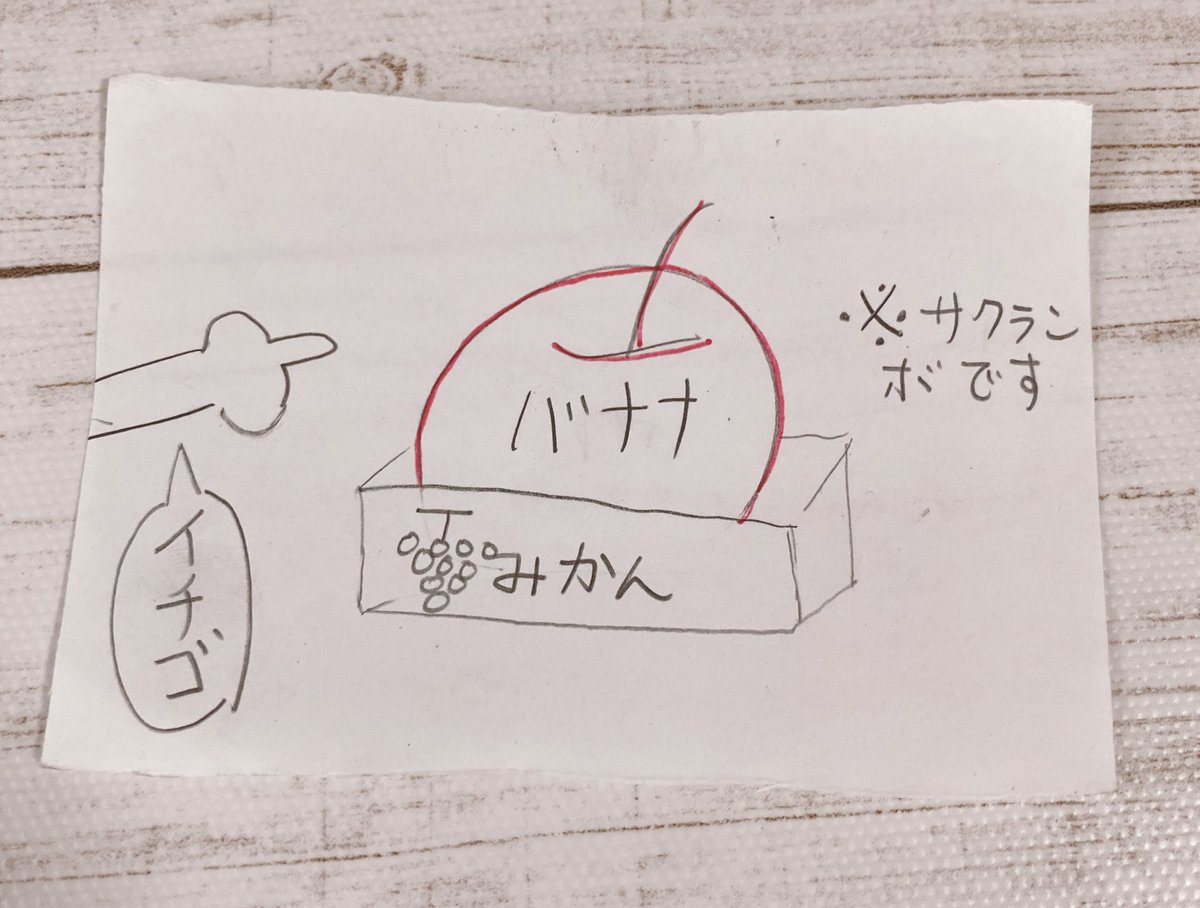 ※サクラン
ボです
バナナ
イチゴ
みかん